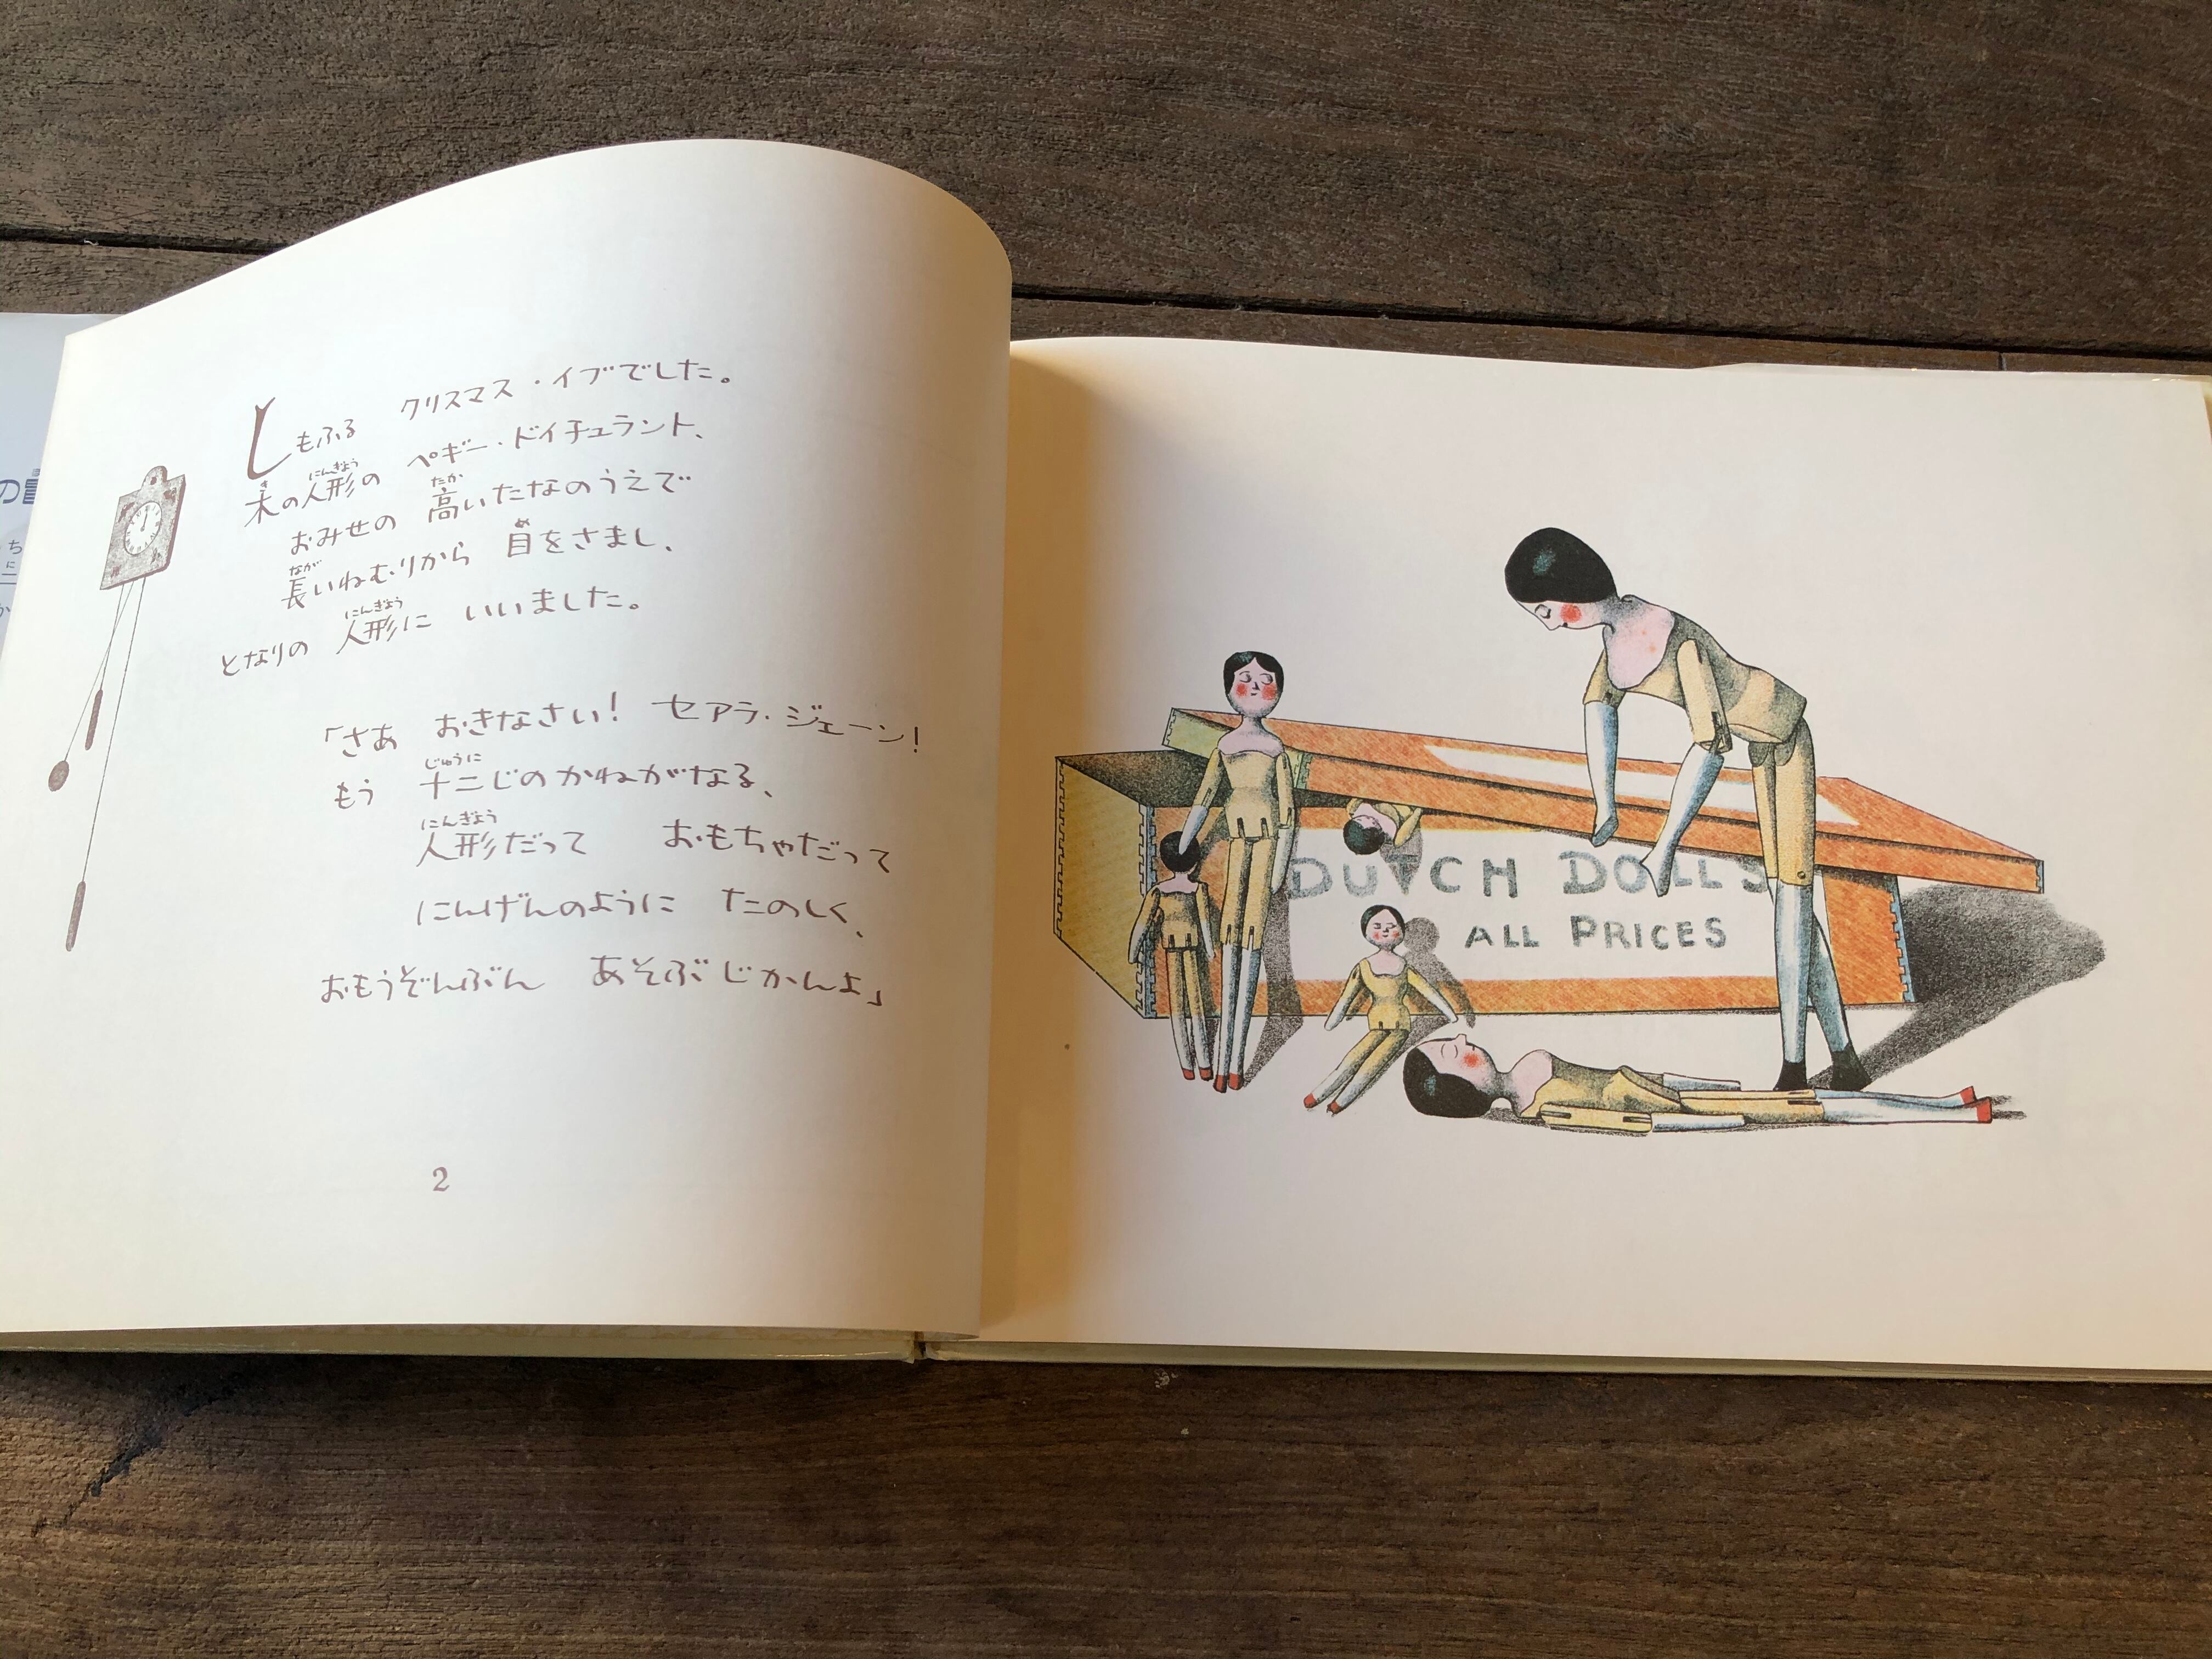 しもふる　クリスマス・イブでした。
木の人形の　ペギー・ドイチュラント、
おみせの　高いたなのうえで
長いねむりから　目をさまし、
となりの　人形に　いいました。
「さあ　おきなさい！　セアラ・ジェーン！
もう　十二じのかねがなる、
人形だって　おもちゃだって
にんげんのように　たのしく、
おもうぞんぶん　あそぶじかんよ」
2
DUTCH DOLLS
ALL PRICES